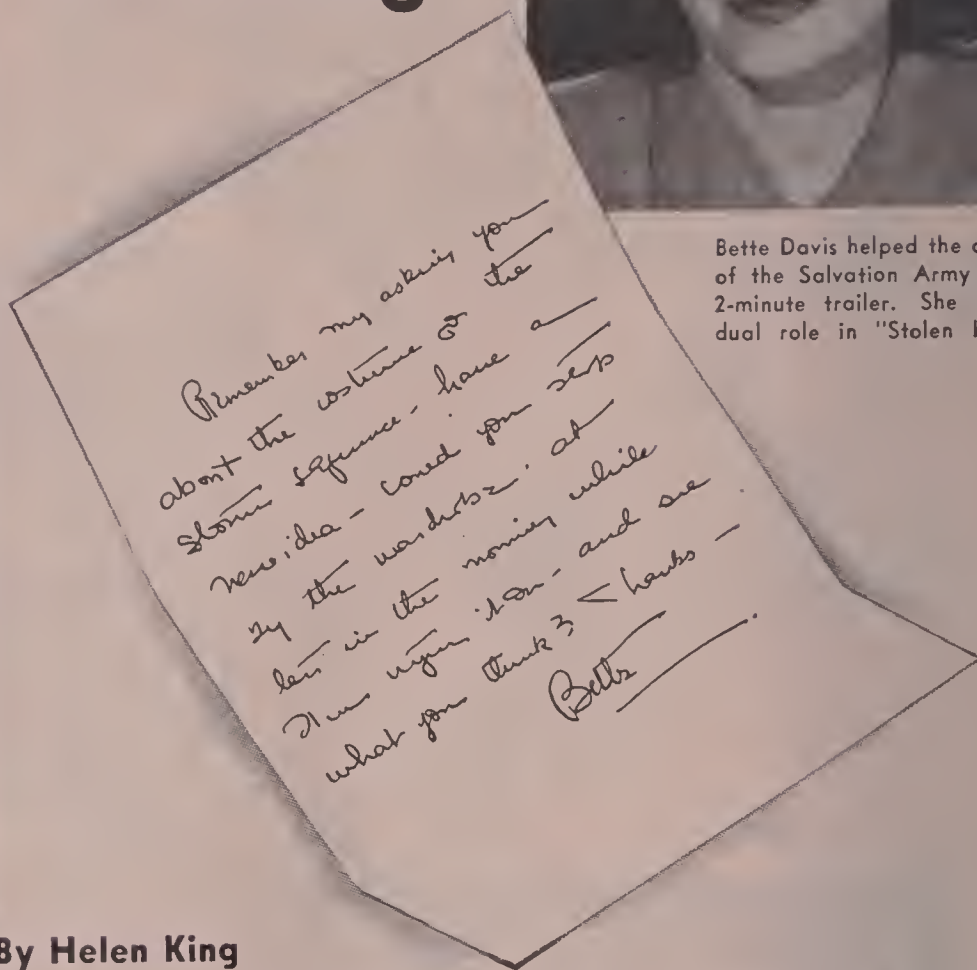 Bette Davis helped the
of the Salvation Army
2-minute trailer. She
dual role in "Stolen
Remember my asking you
about the costume for the
storm sequence - have a
new idea - could you stop
by the wardrobe at
ten in the morning while
I'm trying it on - and see
what you think? Thanks -
Bette
By Helen King